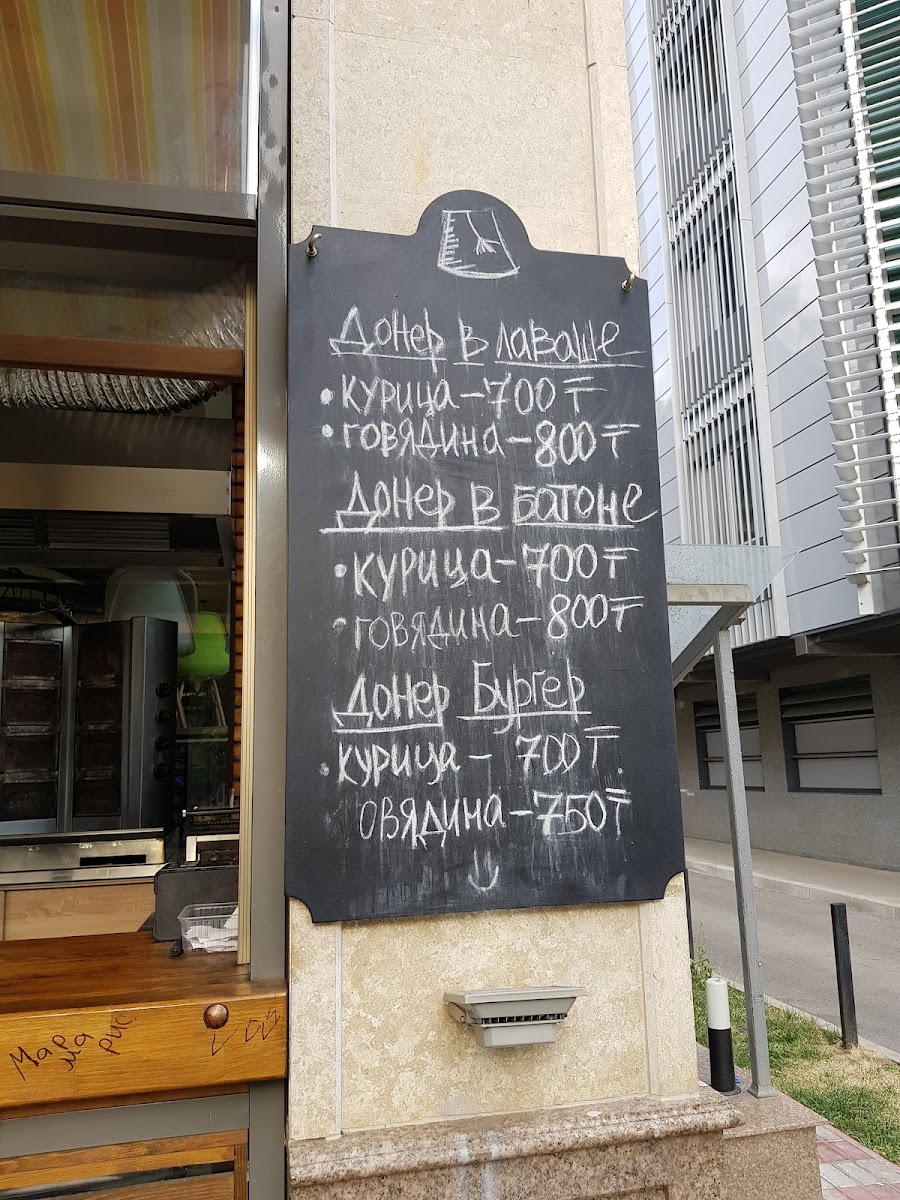 Донер в лаваше
• курица – 700 ₸
• говядина – 800 ₸
Донер в батоне
• курица – 700 ₸
• говядина – 800 ₸
Донер Бургер
• курица – 700 ₸.
овядина – 750 ₸
Мар
ма
рис